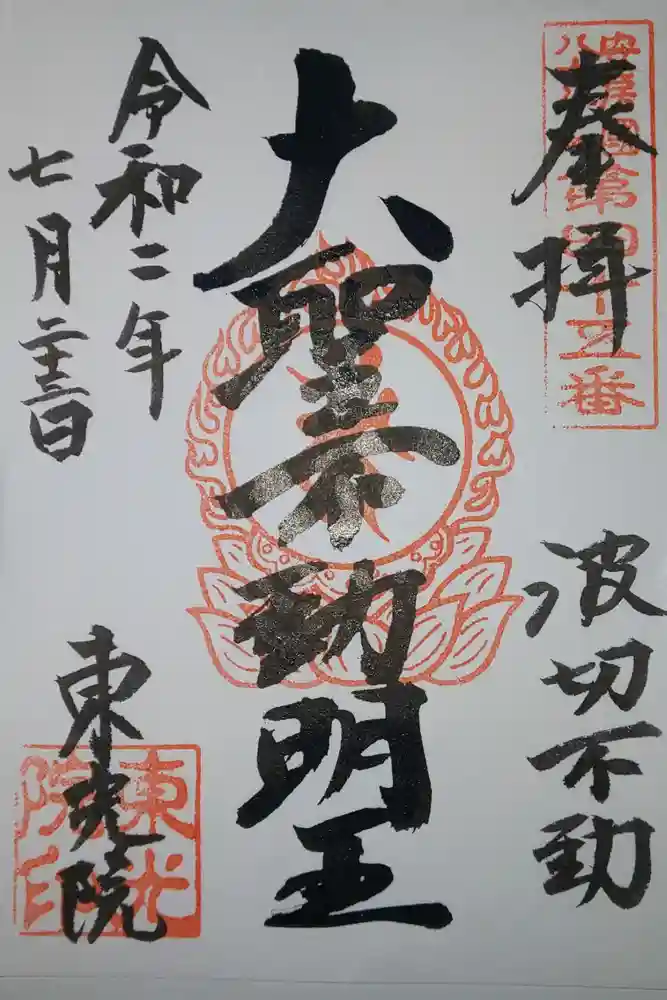 奉拝
第四十五番
波切不動
大聖不動明王
令和二年
七月二十三日
東光院
東光
院印